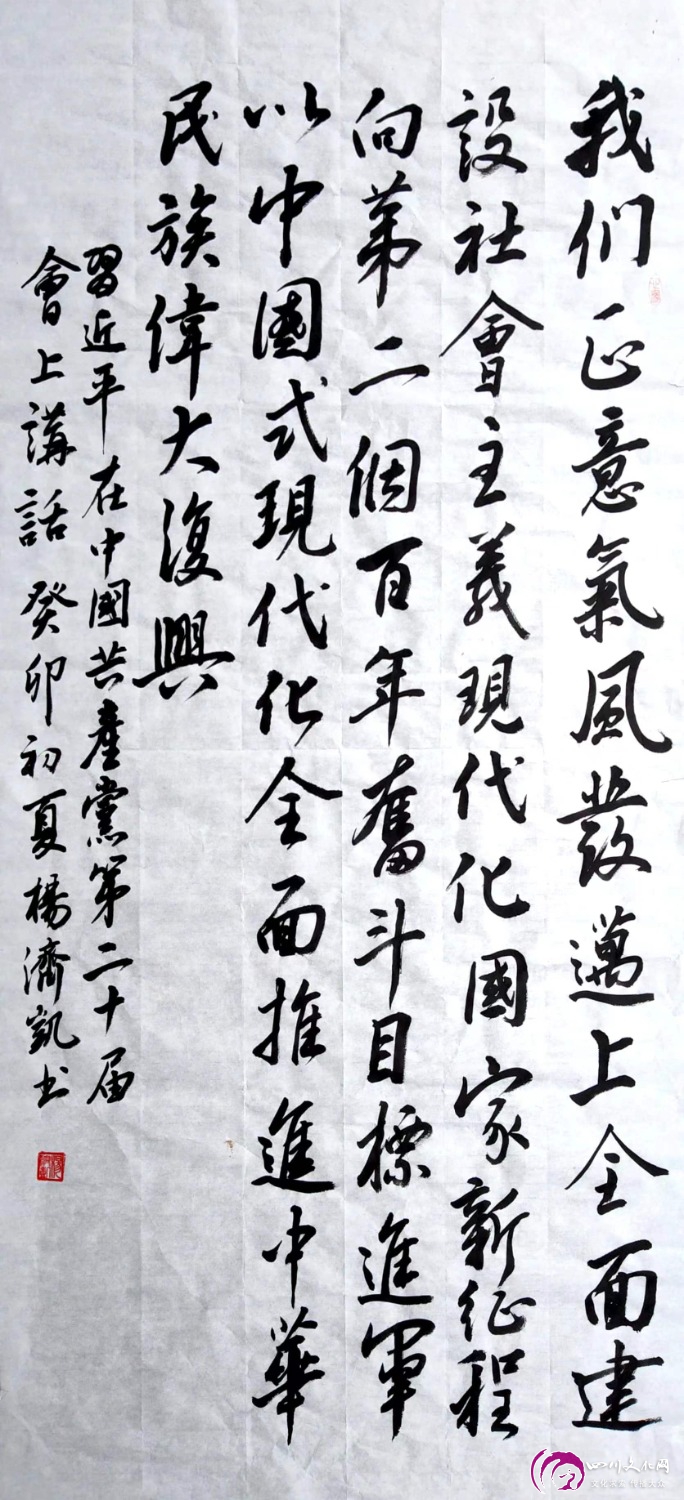 我们正意氣風發邁上全面建
設社會主義現代化國家新征程
向第二個百年奮斗目標進軍
以中國式現代化全面推進中華
民族偉大復興
習近平在中國共產黨第二十届
會上講話 癸卯初夏楊濟凱书
四川文化网